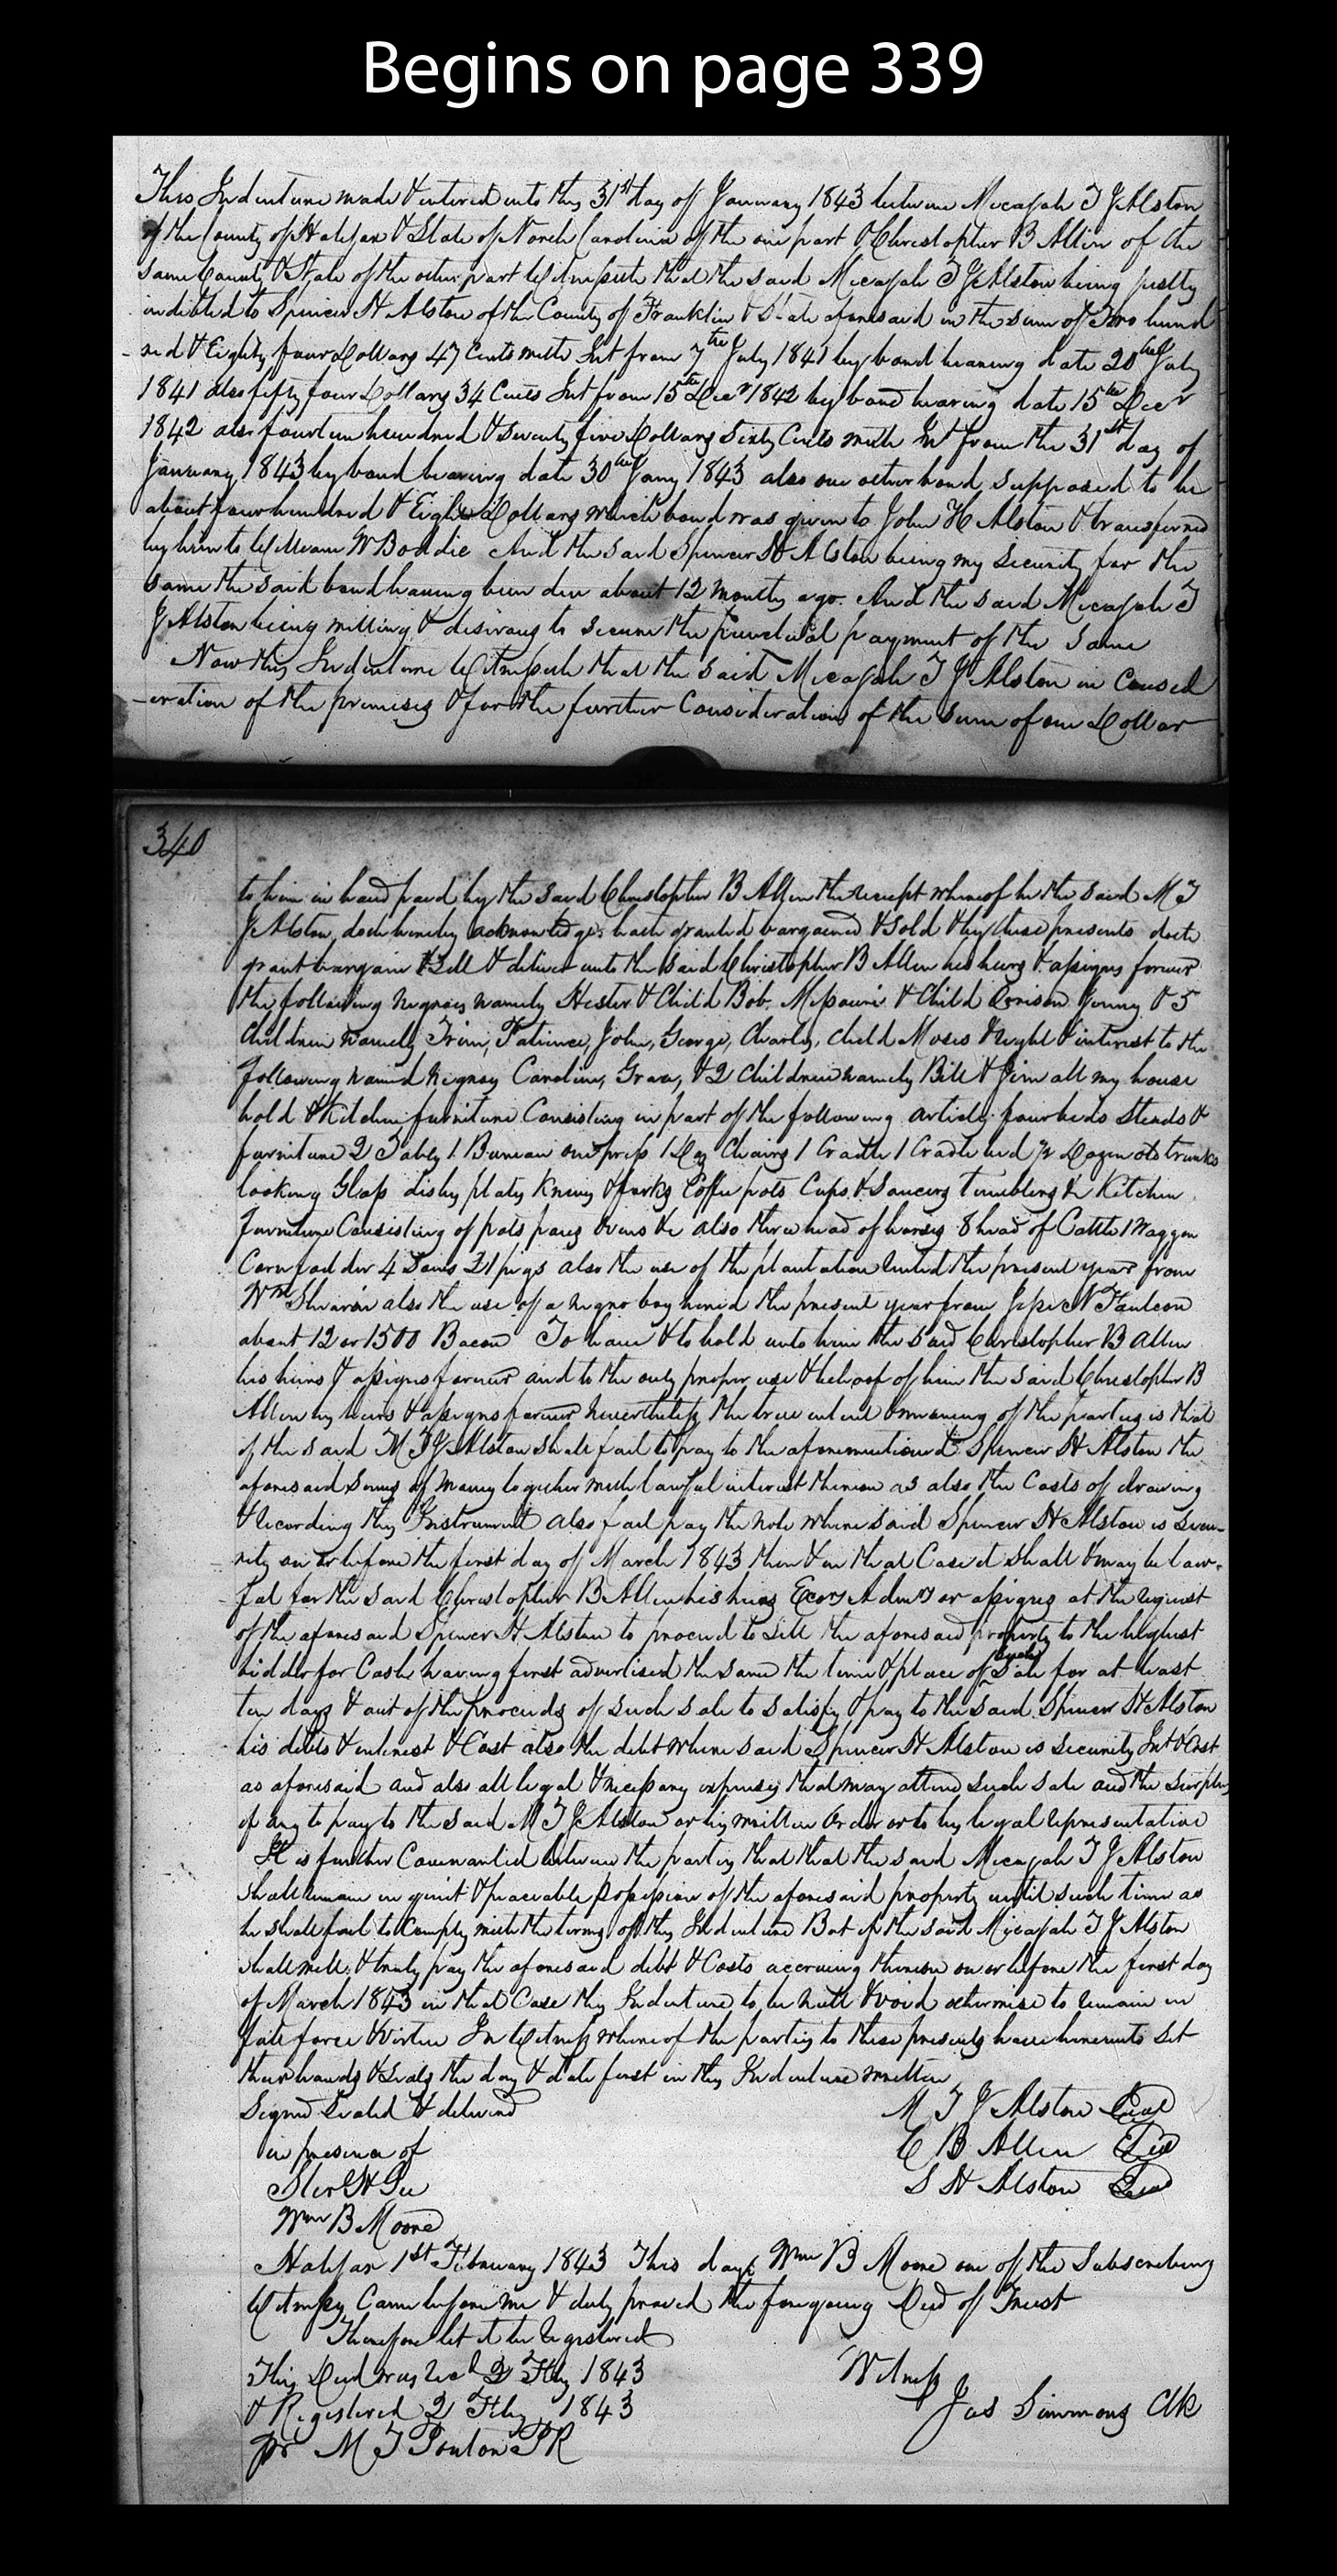 Begins on page 339
This Indenture made & entered into this 31st day of January 1843 between Micajah T J Alston
of the County of Halifax & State of North Carolina of the one part & Christopher B Allen of the
same County & State of the other part Witnesseth that the said Micajah T J Alston being justly
indebted to Spencer H Alston of the County of Franklin & State aforesaid in the sum of Two hund
-red & Eighty four Dollars 47 Cents with Int from 7th July 1841 by bond bearing date 20th July
1841 also fifty four Dollars 34 Cents Int from 15th Decr 1842 by bond bearing date 15th Decr
1842 also fourteen hundred & seventy five Dollars Sixty Cents with Int from the 31st day of
January 1843 by bond bearing date 30th Jany 1843 also one other bond supposed to be
about four hundred & Eight Dollars which bond was given to John H Alston & transferred
by him to William W Boddie And the said Spencer H Alston being my security for the
same the said bond having been due about 12 months ago. And the said Micajah T
J Alston being willing & desirous to secure the punctual payment of the same
Now this Indenture Witnesseth that the said Micajah T J Alston in Consid
-eration of the premises & for the further Consideration of the sum of one Dollar
340
to him in hand paid by the said Christopher B Allen the receipt whereof he the said M T
J Alston, doth hereby acknowledge, hath granted bargained & sold & by these presents doth
grant bargain & Sell & deliver unto the said Christopher B Allen his heirs & assigns forever
the following negroes namely Hester & Child Bob. Missouri & Child Jenny & 5
Children namely Trim, Patience, John, George, Charles, child Moses & right & interest to the
following named negroes Caroline, Grace, & 2 Children namely Bill & Jim all my house
hold & Kitchen furniture Consisting in part of the following articles four beds Steads &
furniture 2 Tables 1 Bureau one press 1 Doz Chairs 1 Cradle 1 Cradle bed ½ Dozen old trunks
looking Glass dishes plates Knives & forks Coffee pots Cups & Saucers Tumblers & Kitchen
Furniture Consisting of pots pans ovens &c also three head of horses 8 head of Cattle 1 Waggon
Corn fodder 4 Sows 21 pigs also the use of the plantation rented the present year from
Wm Shearin also the use of a negro boy hired the present year from Jesse N Faulcon
about 12 or 1500 Bacon To have & to hold unto him the said Christopher B Allen
his heirs & assigns forever and to the only proper use & behoof of him the said Christopher B
Allen his heirs & assigns forever nevertheless the true intent & meaning of the parties is that
if the said M T J Alston shall fail to pay to the aforementioned Spencer H Alston the
aforesaid sums of money together with lawful interest thereon as also the Costs of drawing
& recording this Instrument also fail pay the note where said Spencer H Alston is Secu-
rity on or before the first day of March 1843 then & in that Case it shall & may be law-
ful for the said Christopher B Allen his heirs Ecors Admrs or assigns at the request
of the aforesaid Spencer H Alston to proceed to sell the aforesaid property to the highest
bidder for Cash having first advertised the same the time & place of such Sale for at least
ten days & out of the proceeds of such sale to satisfy & pay to the said Spencer H Alston
his debts & interest & Cost also the debt where said Spencer H Alston is security Int & Cost
as aforesaid and also all legal & necessary expenses that may attend such sale and the surplus
if any to pay to the said M T J Alston or his written Order or to his legal representative
It is further Covenanted between the parties that that the said Micajah T J Alston
shall remain in quiet & peaceable possession of the aforesaid property until such time as
he shall fail to Comply with the terms of this Indenture But if the said Micajah T J Alston
shall well & truly pay the aforesaid debt & Costs accruing thereon on or before the first day
of March 1843 in that Case this Indenture to be null & void otherwise to remain in
full force & virtue In Witness whereof the parties to these presents have hereunto set
their hands & seals the day & date first in this Indenture written
Signed Sealed & delivered
M T J Alston Seal
in presence of
C B Allen Seal
S H Alston Seal
Wm B Moore
Halifax 1st February 1843 This day Wm B Moore one of the Subscribing
Witnesses Came before me & duly proved the foregoing Deed of Trust
Therefore let it be Registered
This Deed was Recd 2 Feby 1843
Witness
& Registered 2 Feby 1843
Jas Simmons Clk
pr M T Ponton PR